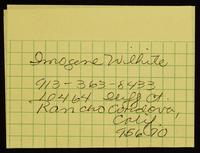 Imogene Wilhite
913-363-8433
10464 Ct
Rancho Cordova,
Calif.
95670